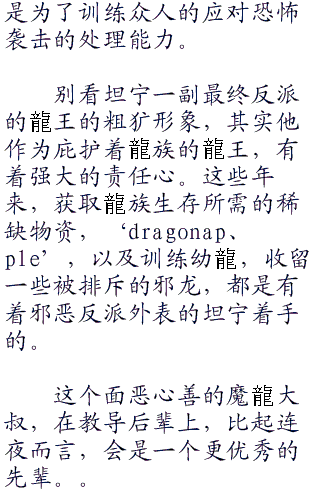 是为了训练众人的应对恐怖
袭击的处理能力。
别看坦宁一副最终反派
的龍王的粗犷形象，其实他
作为庇护着龍族的龍王，有
着强大的责任心。这些年
来，获取龍族生存所需的稀
缺物资，‘dragonap、
ple’，以及训练幼龍，收留
一些被排斥的邪龙，都是有
着邪恶反派外表的坦宁着手
的。
这个面恶心善的魔龍大
叔，在教导后辈上，比起连
夜而言，会是一个更优秀的
先辈。。